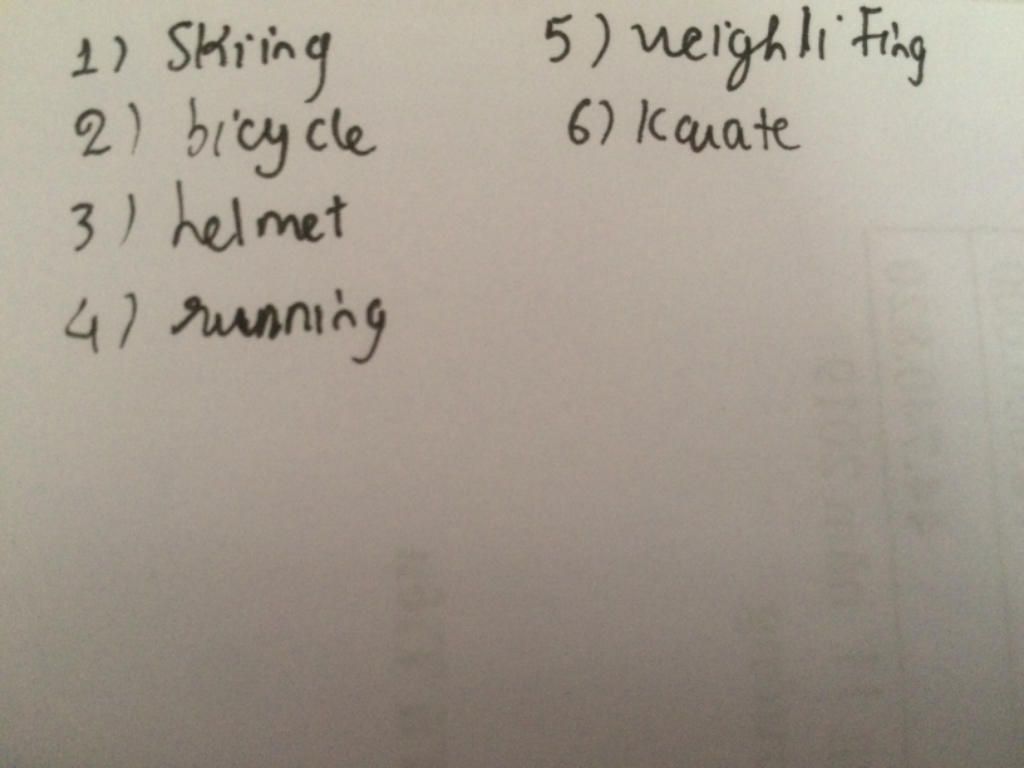 1) Skiing
2) bicycle
3) helmet
4) running
5) weighlifing
6) Karate